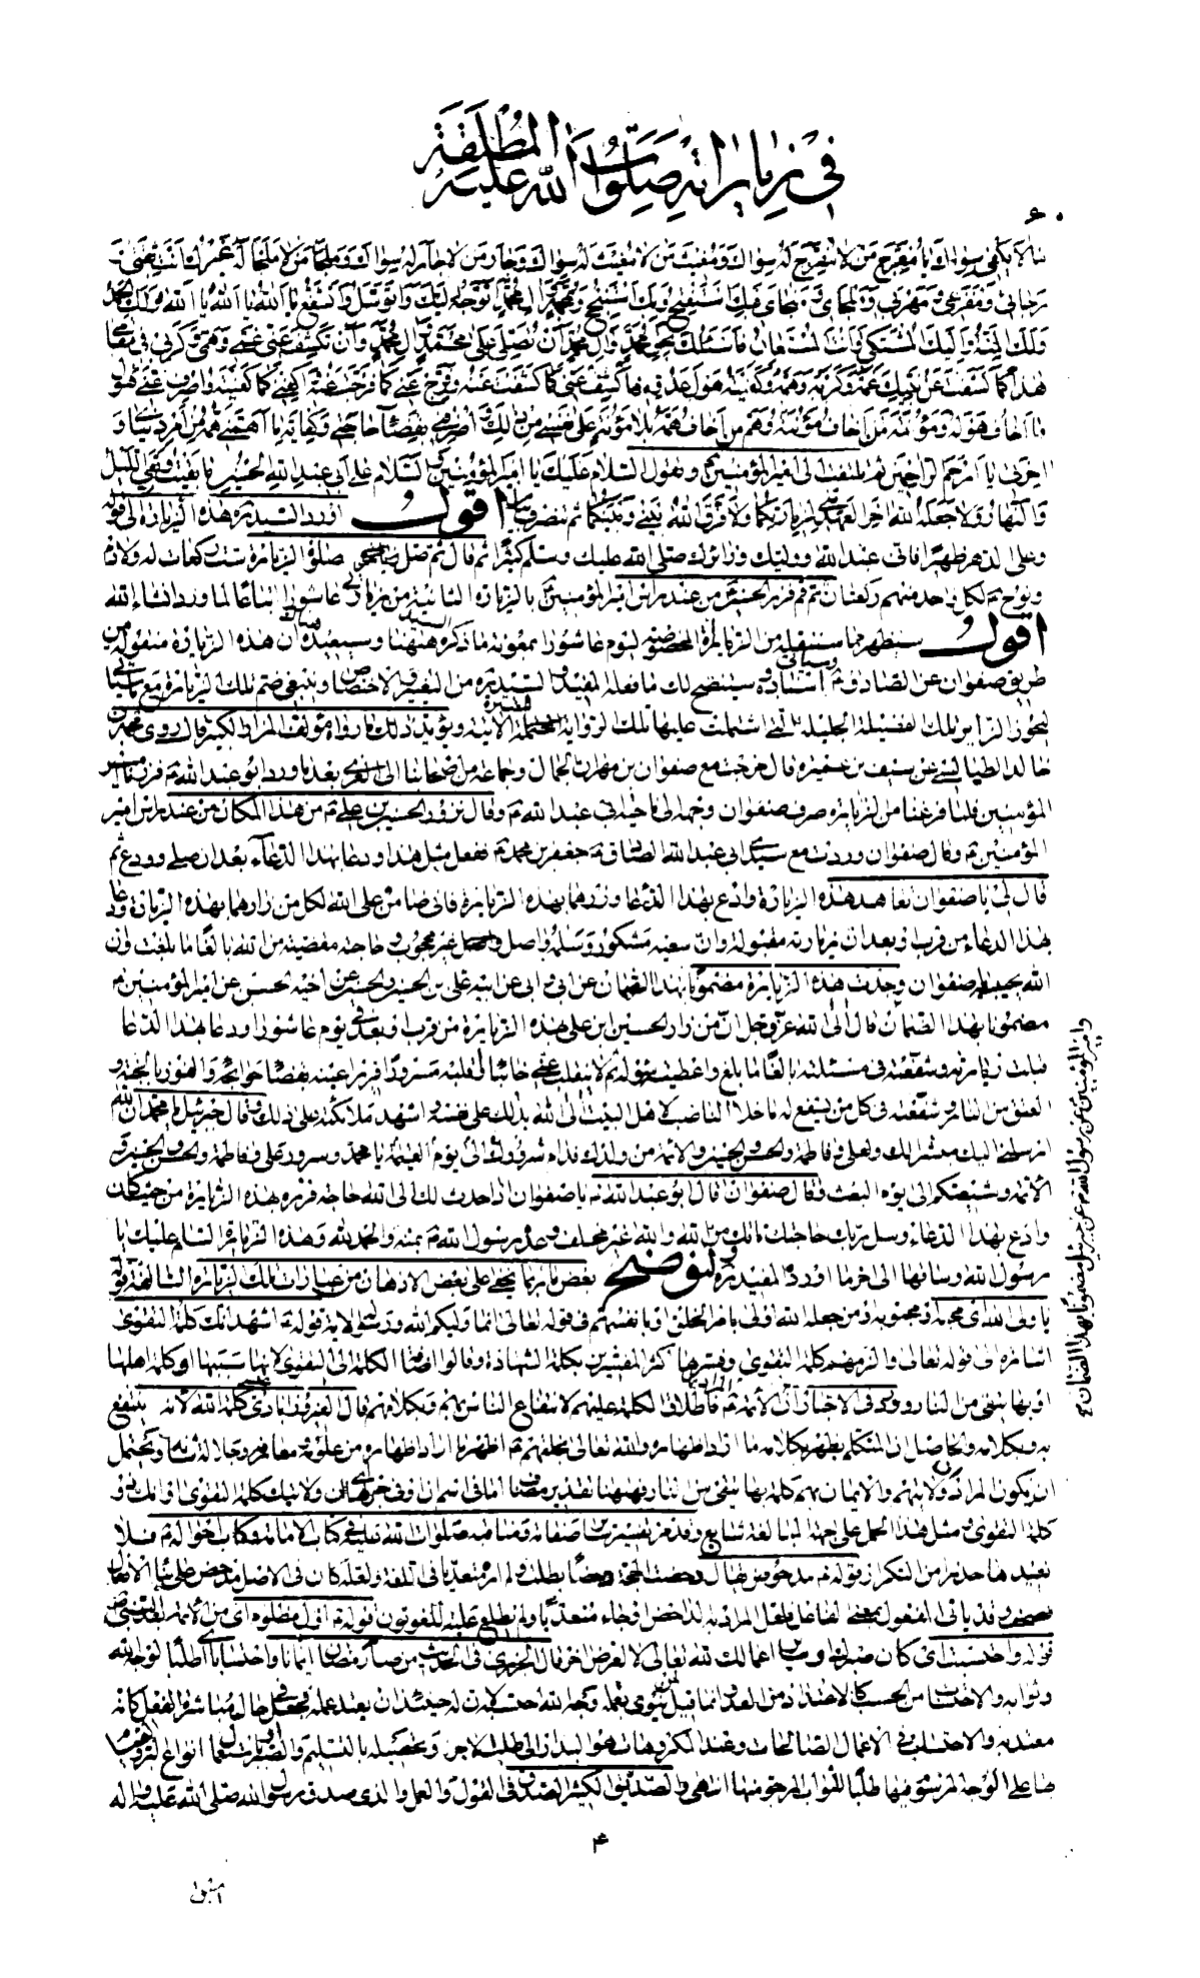 في زياراته صلوات الله عليه المطلقة
٦٠
لا يكفي سواك يا مفرج من لا مفرج له سواك ومغيث من لا مغيث له سواك وجار من لا جار له سواك وملجأ من لا ملجأ له غيرك أنت ثقتي
رجائي ومفزعي ومهربي وملجاي ومنجاي فبك استفتح وبك استنجح وبمحمد وآل محمد أتوجه إليك وأتوسل وأتشفع يا الله يا الله يا الله ولك الحمد
ولك المنة وإليك المشتكى وأنت المستعان فأسئلك بحق محمد وآل محمد أن تصلي على محمد وآل محمد وأن تكشف عني غمي وهمي وكربي في مقامي
هذا كما كشفت عن نبيك غمه وكربه وهمه وكفيته هول عدوه فاكشف عني كما كشفت عنه وفرج عني كما فرجت عنه واكفني كما كفيته واصرف عني هول
ما أخاف هوله ومؤنة من أخاف مؤنته وهم من أخاف همه بلا مؤنة على نفسي من ذلك اصرفني بقضاء حاجتي وكفاية ما أهمني همه من أمر دنياي و
آخرتي يا أرحم الراحمين ثم تلتفت إلى أمير المؤمنين وتقول السلام عليك يا أمير المؤمنين السلام على أبي عبد الله الحسين ما بقيت وبقي الليل
والنهار ولا جعله الله آخر العهد مني لزيارتكما ولا فرق الله بيني وبينكما ثم تنصرف أقول أورد السيد هذه الزيارة إلى قوله
وعلى الدهر ظهيرا فإني عبد الله ووليك وزائرك صلى الله عليك وسلم كثيرا ثم قال ثم صل صلوة الزيارة ست ركعات له ولآدم
ونوح لكل واحد منهم ركعتان ثم قم فزر الحسين من عند رأس أمير المؤمنين بالزيارة الثانية من زيارتي عاشورا اتباعا لما ورد انشاء الله
أقول سيظهر مما سننقله من الزيارة المختصة ليوم عاشورا بمعونة ما ذكره ههنا وسيعيده أن هذه الزيارة منقولة من
طريق صفوان عن الصادق باسناده وسيتضح لك ما فعله المفيد والسيد من التغيير والاختصار وينبغي ضم تلك الزيارة مع ما سيأتي
ليحوز الزائر تلك الفضيلة الجليلة التي اشتملت عليها تلك الرواية الآتية ويؤيد ذلك ما رواه مؤلف المزار الكبير قال روى محمد بن
خالد الطيالسي عن سيف بن عميرة قال خرجت مع صفوان بن مهران الجمال وجماعة من أصحابنا إلى الغري بعد ما ورد أبو عبد الله فزرنا أمير
المؤمنين فلما فرغنا من الزيارة صرف صفوان وجهه إلى ناحية أبي عبد الله وقال نزور الحسين بن علي من هذا المكان من عند رأس أمير
المؤمنين وقال صفوان وردت مع سيدي أبي عبد الله الصادق جعفر بن محمد ففعل مثل هذا ودعا بهذا الدعاء بعد أن صلى وودع ثم
قال لي يا صفوان تعاهد هذه الزيارة وادع بهذا الدعاء وزرهما بهذه الزيارة فإني ضامن على الله لكل من زارهما بهذه الزيارة ودعا
بهذا الدعاء من قرب أو بعد أن زيارته مقبولة وأن سعيه مشكور وسلامه واصل غير محجوب وحاجته مقضية من الله بالغا ما بلغت وأن
الله يجيبه يا صفوان وجدت هذه الزيارة مضمونا بهذا الضمان عن أبي وأبي عن أبيه علي بن الحسين والحسين عن أخيه الحسن عن أمير المؤمنين
مضمونا بهذا الضمان قال آلى الله عز وجل أن من زار الحسين ابن علي بهذه الزيارة من قرب أو بعد في يوم عاشورا ودعا بهذا الدعاء
قبلت زيارته وشفعته في مسئلته بالغا ما بلغ وأعطيته سؤله ثم لا ينقلب عني خائبا وأقلبه مسرورا قريرا عينه بقضاء حوائجه والفوز بالجنة و
العتق من النار وشفعته في كل من يشفع له ما خلا الناصب لأهل البيت آلى الله بذلك على نفسه وأشهد ملائكته على ذلك وقال جبرئيل يا محمد إن الله
أرسلني إليك مبشرا لك ولعلي وفاطمة والحسن والحسين والأئمة من ولدك فدام سرورك إلى يوم القيامة يا محمد وسرور علي وفاطمة والحسن والحسين و
الأئمة وشيعتكم إلى يوم البعث وقال صفوان قال أبو عبد الله يا صفوان إذا حدث لك إلى الله حاجة فزره بهذه الزيارة من حيث كنت
وادع بهذا الدعاء وسل ربك حاجتك تأتك من الله والله غير مخلف وعده رسول الله بمنه والحمد لله وهذه الزيارة السلام عليك يا
رسول الله وساقها إلى آخر ما أورده المفيد ولنوضح بعض ما ربما يخفى على بعض الأذهان من عبارات تلك الزيارة السالفة قوله
يا ولي الله أي محبه أو محبوبه أو من جعله الله أولى بأمر الخلق أو بأنفسهم في قوله تعالى إنما وليكم الله ورسوله الآية قوله أشهد أنك كلمة التقوى
إشارة إلى قوله تعالى وألزمهم كلمة التقوى وفسرها أكثر المفسرين بكلمة الشهادة وقالوا أضاف الكلمة إلى التقوى لأنها سببها أو كلمة أهلها
أو بها يتقى من النار وورد في الأخبار أن الأئمة فإطلاق الكلمة عليهم لانتفاع الناس بهم وبكلامهم قال الفيروزآبادي كلمة الله لأنه ينتفع
به وبكلامه والحاصل أن المتكلم يظهر بكلامه ما أراد إظهاره والله تعالى بخلقهم أظهر ما أراد إظهاره من علومه معارفه وجلالة شأنه ويحتمل
أن يكون المراد ولايتهم والإيمان بهم كلمة بها يتقى من النار فههنا تقدير مضاف إما في اسم أن أو في خبرها أي ولايتك كلمة التقوى أو أنك ذو
كلمة التقوى ومثل هذا الحمل على جهة المبالغة شايع وقد مر تفسير ساير صفاته ومناقبه صلوات الله عليه في كتاب الإمامة وكتاب أحواله فلا
نعيدها حذرا من التكرار قوله مدحوض يقال دحضت الحجة دحضا بطلت ولم أر متعديا في اللغة ولعله كان في الأصل مدحض على بناء الإفعال
فصحف وقد يأتي المفعول بمعنى الفاعل ولعل المراد به الداحض أو جاء متعديا ولم يطلع عليه اللغويون قوله أول مظلوم أي من الأئمة
قوله واحتسبت أي كان صبرك وساير أعمالك لله تعالى لا لغرض آخر قال الجزري في الحديث من صام رمضان إيمانا واحتسابا أي طلبا لوجه الله
وثوابه والاحتساب من الحسب كالاعتداد من العد وإنما قيل لمن ينوي بعمله وجه الله احتسبه لأن له حينئذ أن يعتد عمله فجعل في حال مباشرة الفعل كأنه
معتد به والاحتساب في الأعمال الصالحات وعند المكروهات هو البدار إلى طلب الأجر وتحصيله بالتسليم والصبر أو باستعمال أنواع البر والقيام
بها على الوجه المرسوم فيها طلبا للثواب المرجو منها انتهى والصديق الكثير الصدق في القول والعمل والذي صدق رسول الله صلى الله عليه وآله
وأمير المؤمنين عن رسول الله عن جبرئيل مضمونا بهذا الضمان
٤